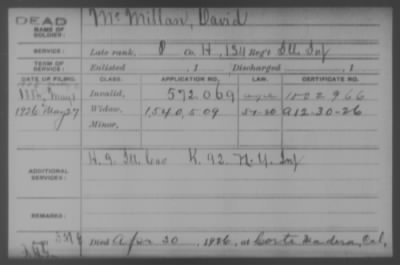 DEAD
NAME OF SOLDIER:
McMillan, David
SERVICE:
Late rank, P Co. H, 134 Reg't Ill. Inf
TERM OF SERVICE:
Enlisted , 1 Discharged , 1
DATE OF FILING. CLASS. APPLICATION NO. LAW. CERTIFICATE NO.
May 1 Invalid, 572.069 1502966
1926 May 27 Widow, 1,540,509 5-1-20 A12-30-26
Minor,
ADDITIONAL SERVICES:
H. 9 Ill. Cav K. 92 N.Y. Inf
REMARKS:
Died Apr 20, 1926, at Corte Madera, Cal.